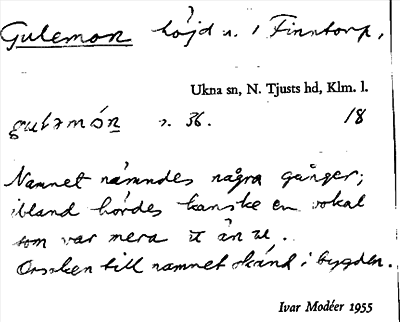 Gulemon höjd n. i Finntorp,
Ukna sn, N. Tjusts hd, Klm. l.
guləmón s. 36. 18
Namnet nämndes några gånger;
ibland hördes kanske en vokal
som var mera ɷ än u.
Orsaken till namnet okänd i bygden.
Ivar Modéer 1955